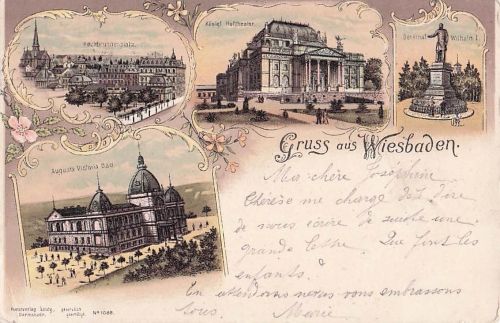 Kochbrunnenplatz.
Königl. Hoftheater.
Denkmal Wilhelm I.
Augusta Victoria Bad.
Gruss aus Wiesbaden.
Ma chère Joséphine
Thérèse me charge de dire
de vous écrire de suite une
grande lettre. Que font les
enfants.
En attendant nous vous embrassons
tous. Marie
Kunstverlag
Darmstadt. gesetzlich
geschützt. No 1088.